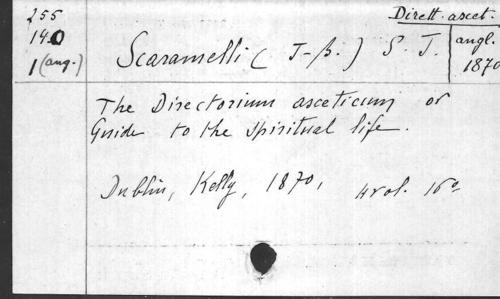 255
140
1 (ang.)
Dirett. ascet.
angl.
1870
Scaramelli (J-B.) S. J.
The Directorium asceticum or
Guide to the spiritual life.
Dublin, Kelly, 1870, 4 vol. 16°